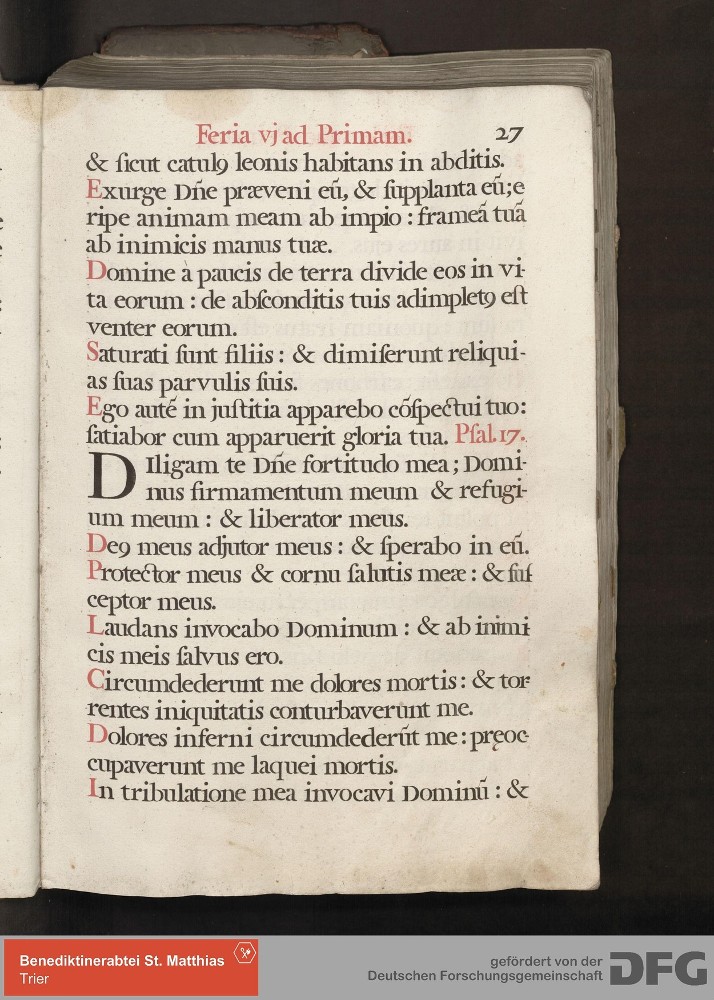 Feria vj ad Primam. 27
& ſicut catulꝯ leonis habitans in abditis.
Exurge Dñe præveni eũ, & ſupplanta eũ; e
ripe animam meam ab impio : frameã tuã
ab inimicis manus tuæ.
Domine à paucis de terra divide eos in vi-
ta eorum : de abſconditis tuis adimpletꝯ eſt
venter eorum.
Saturati ſunt filiis : & dimiſerunt reliqui-
as ſuas parvulis ſuis.
Ego auté in juſtitia apparebo cõſpectui tuo:
ſatiabor cum apparuerit gloria tua. Pſal. 17.
DIligam te Dñe fortitudo mea ; Domi-
nus firmamentum meum & refugi-
um meum : & liberator meus.
Deꝯ meus adjutor meus : & ſperabo in eũ.
Protector meus & cornu ſalutis meæ : & ſuſ
ceptor meus.
Laudans invocabo Dominum : & ab inimi
cis meis ſalvus ero.
Circumdederunt me dolores mortis : & tor-
rentes iniquitatis conturbaverunt me.
Dolores inferni circumdederũt me : pręoc-
cupaverunt me laquei mortis.
In tribulatione mea invocavi Dominũ : &
Benediktinerabtei St. Matthias
Trier
gefördert von der
Deutschen Forschungsgemeinschaft
DFG